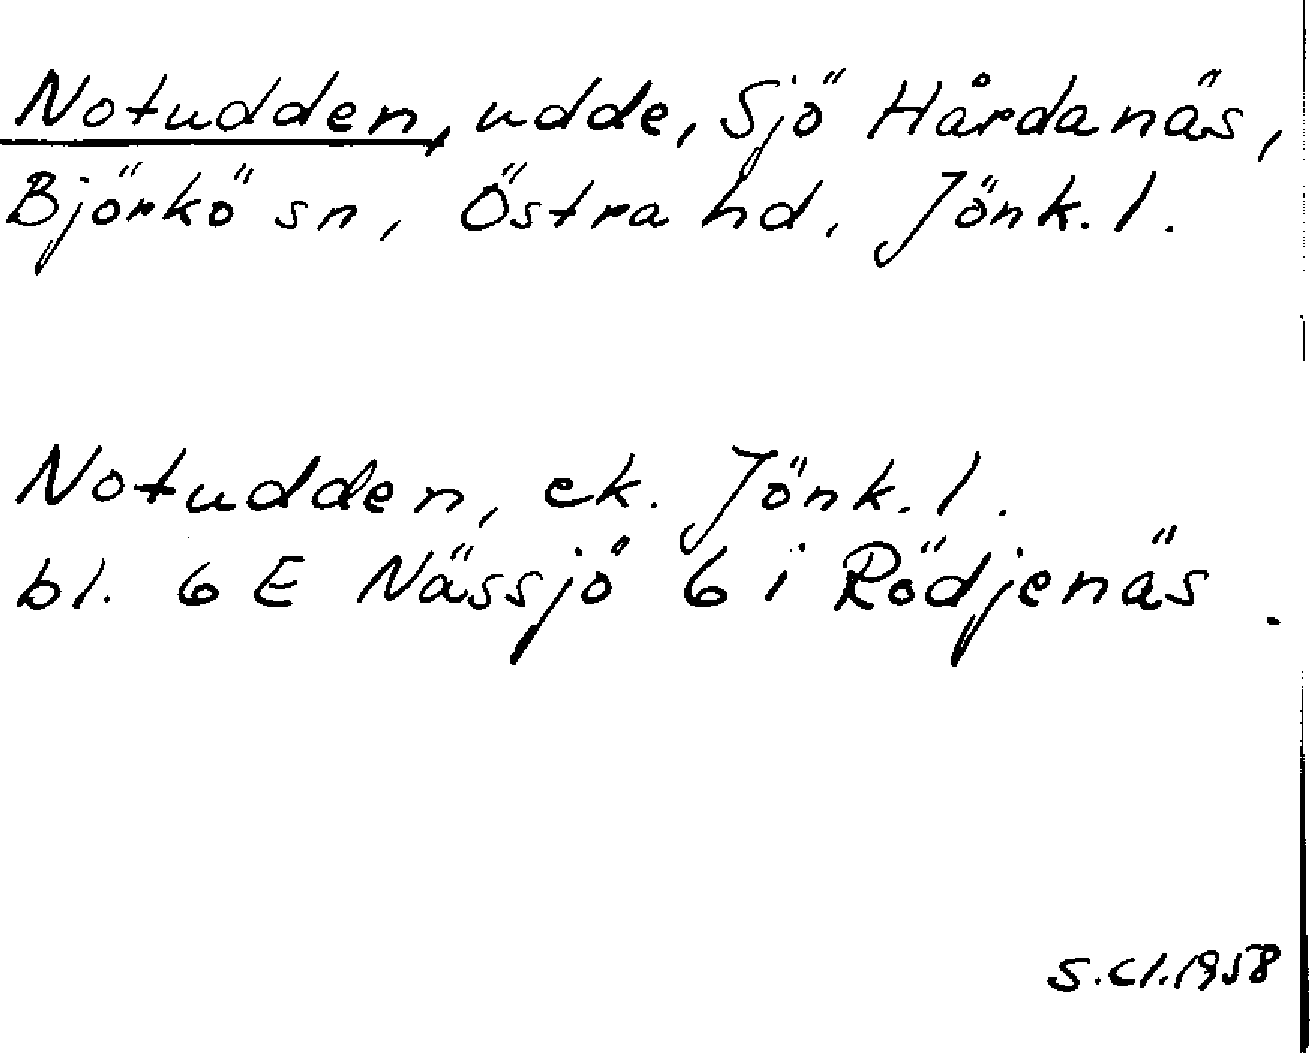 Notudden, udde, Sjö Hårdanäs,
Björkö sn, Östra hd. Jönk. l.
Notudden, ek. Jönk. l.
bl. 6 E Nässjö 6 i Rödjenäs.
S.Cl.1958